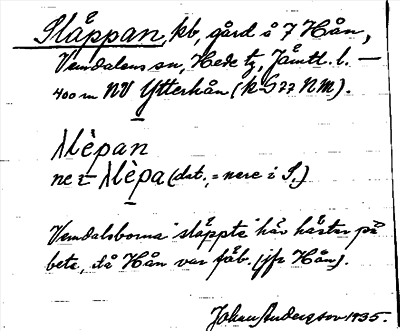 Släppan, kb, gård å 7 Hån,
Vemdalens sn, Hede tg, Jämtl. l. —
400 m NV Ytterhån (k-S 77 NM).
ne
(dat., = nere i S.)
Vemdalsborna "släppte" här hästar på
bete, då Hån var fäb. (jfr Hån).
Johan Andersson 1935.